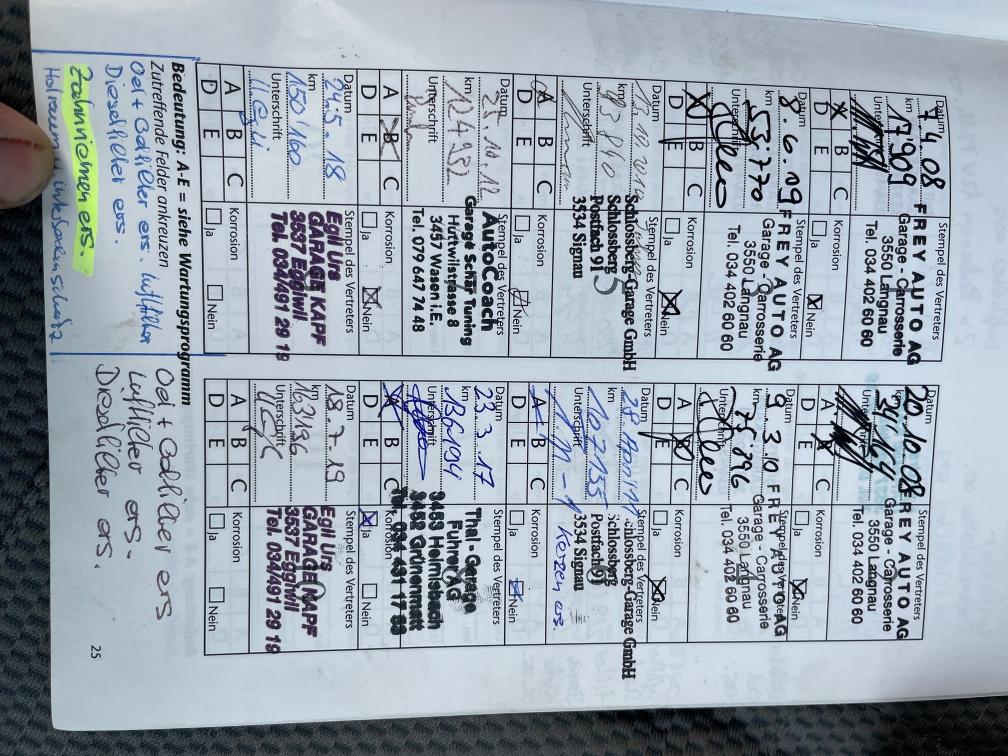 Datum
7.4.08
km
17909
Unterschrift
A B C
D E
Stempel des Vertreters
FREY AUTO AG
Garage - Carrosserie
3550 Langnau
Tel. 034 402 60 60
Korrosion
Ja Nein
Datum
20.10.08
Unterschrift
A B C
D E
Stempel des Vertreters
FREY AUTO AG
Garage - Carrosserie
3550 Langnau
Tel. 034 402 60 60
Korrosion
Ja Nein
Datum
8.6.09
km
53'770
Unterschrift
A B C
D E
Stempel des Vertreters
FREY AUTO AG
Garage - Carrosserie
3550 Langnau
Tel. 034 402 60 60
Korrosion
Ja Nein
Datum
9 3.10
km
Unterschrift
A B C
D E
Stempel des Vertreters
FREY AUTO AG
Garage - Carrosserie
3550 Langnau
Tel. 034 402 60 60
Korrosion
Ja Nein
Datum
km
93860
Unterschrift
A B C
D E
Stempel des Vertreters
Schlossberg-Garage GmbH
Schlossberg
Postfach 91
3534 Signau
Korrosion
Ja Nein
Datum
km
107235
Unterschrift
A B C
D E
Stempel des Vertreters
Schlossberg-Garage GmbH
Schlossberg
Postfach 91
3534 Signau
Kerzen ers.
Korrosion
Ja Nein
Datum
25.10.12
km
124932
Unterschrift
A B C
D E
Stempel des Vertreters
AutoCoach
Garage Schär Tuning
Huttwilstrasse 8
3457 Wasen i.E.
Tel. 079 647 74 48
Korrosion
Ja Nein
Datum
23.3.17
km
136194
Unterschrift
A B C
D E
Stempel des Vertreters
Thal-Garage
Fuhrer AG
3453 Heimisbach
3452 Grünenmatt
Tel. 034 431 17 63
Korrosion
Ja Nein
Datum
24.5.18
km
150'160
Unterschrift
A B C
D E
Stempel des Vertreters
Egli Urs
GARAGE KAPF
3537 Eggiwil
Tel. 034/491 29 19
Korrosion
Ja Nein
Datum
18.7.19
km
163196
Unterschrift
A B C
D E
Stempel des Vertreters
Egli Urs
GARAGE KAPF
3537 Eggiwil
Tel. 034/491 29 19
Korrosion
Ja Nein
Bedeutung: A-E = siehe Wartungsprogramm
Zutreffende Felder ankreuzen
Oel + Oelfilter ers. Luftfilter
Dieselfilter ers.
Zahnriemen ers.
Oel + Oelfilter ers
Luftfilter ers.
Dieselfilter ers.
25